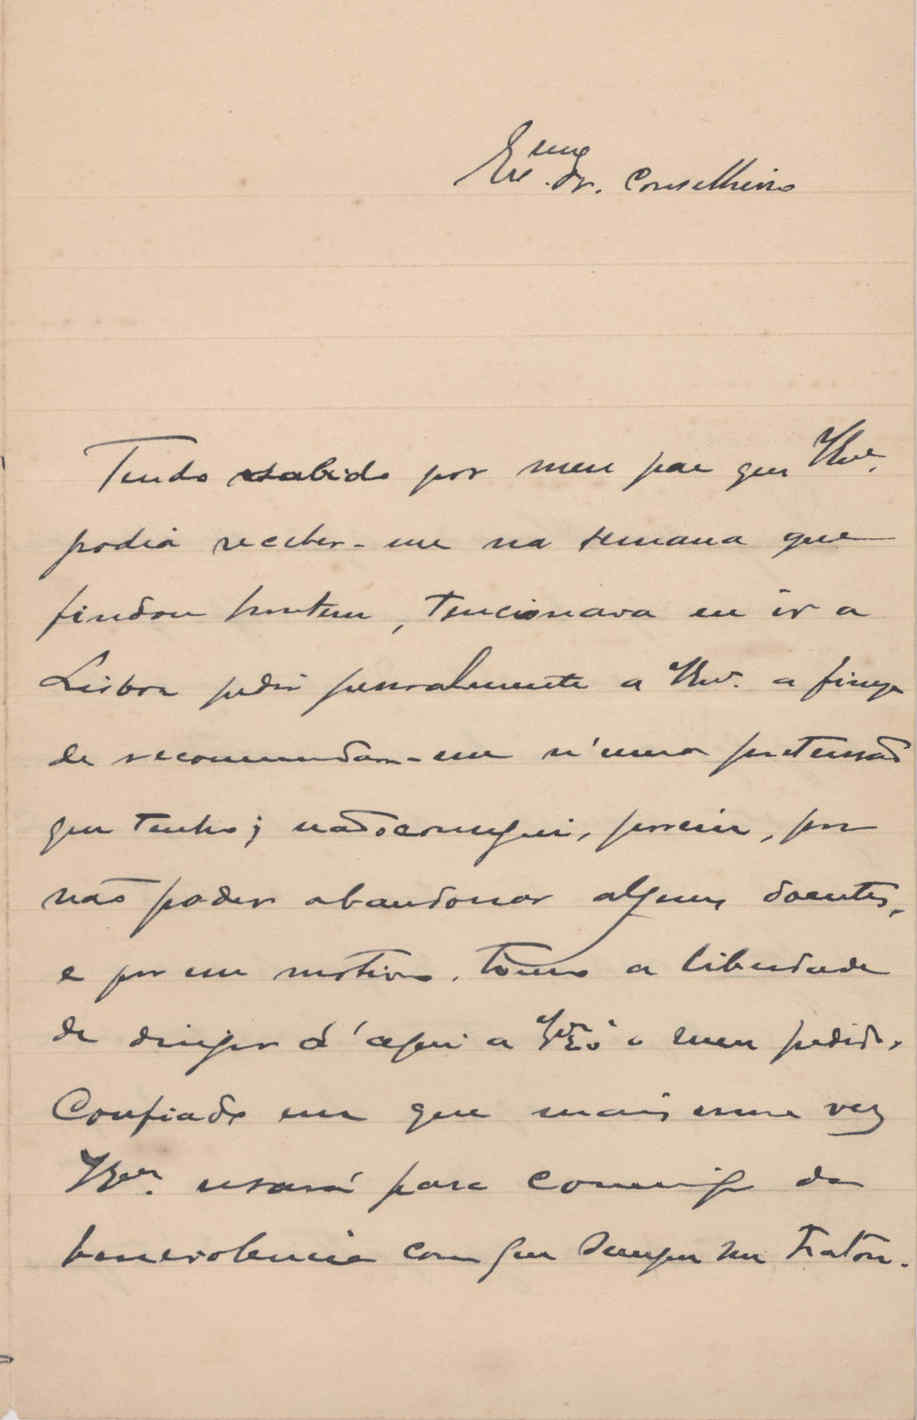 Exmo Sr. Conselheiro
Tendo sabido por meu pae que VExa.
podia receber-me na semana que
findou hontem, tencionava eu ir a
Lisboa pedir pessoalmente a VExa. a fineza
de recommendar-me n'uma pretensão
que tenho; não o consegui, porem, por
não poder abandonar alguns doentes,
e por esse motivo, tomo a liberdade
de dirigir d'aqui a VExa o meu pedido,
Confiado em que mais uma vez
VExa. usará para commigo da
benevolencia com que sempre me tratou.